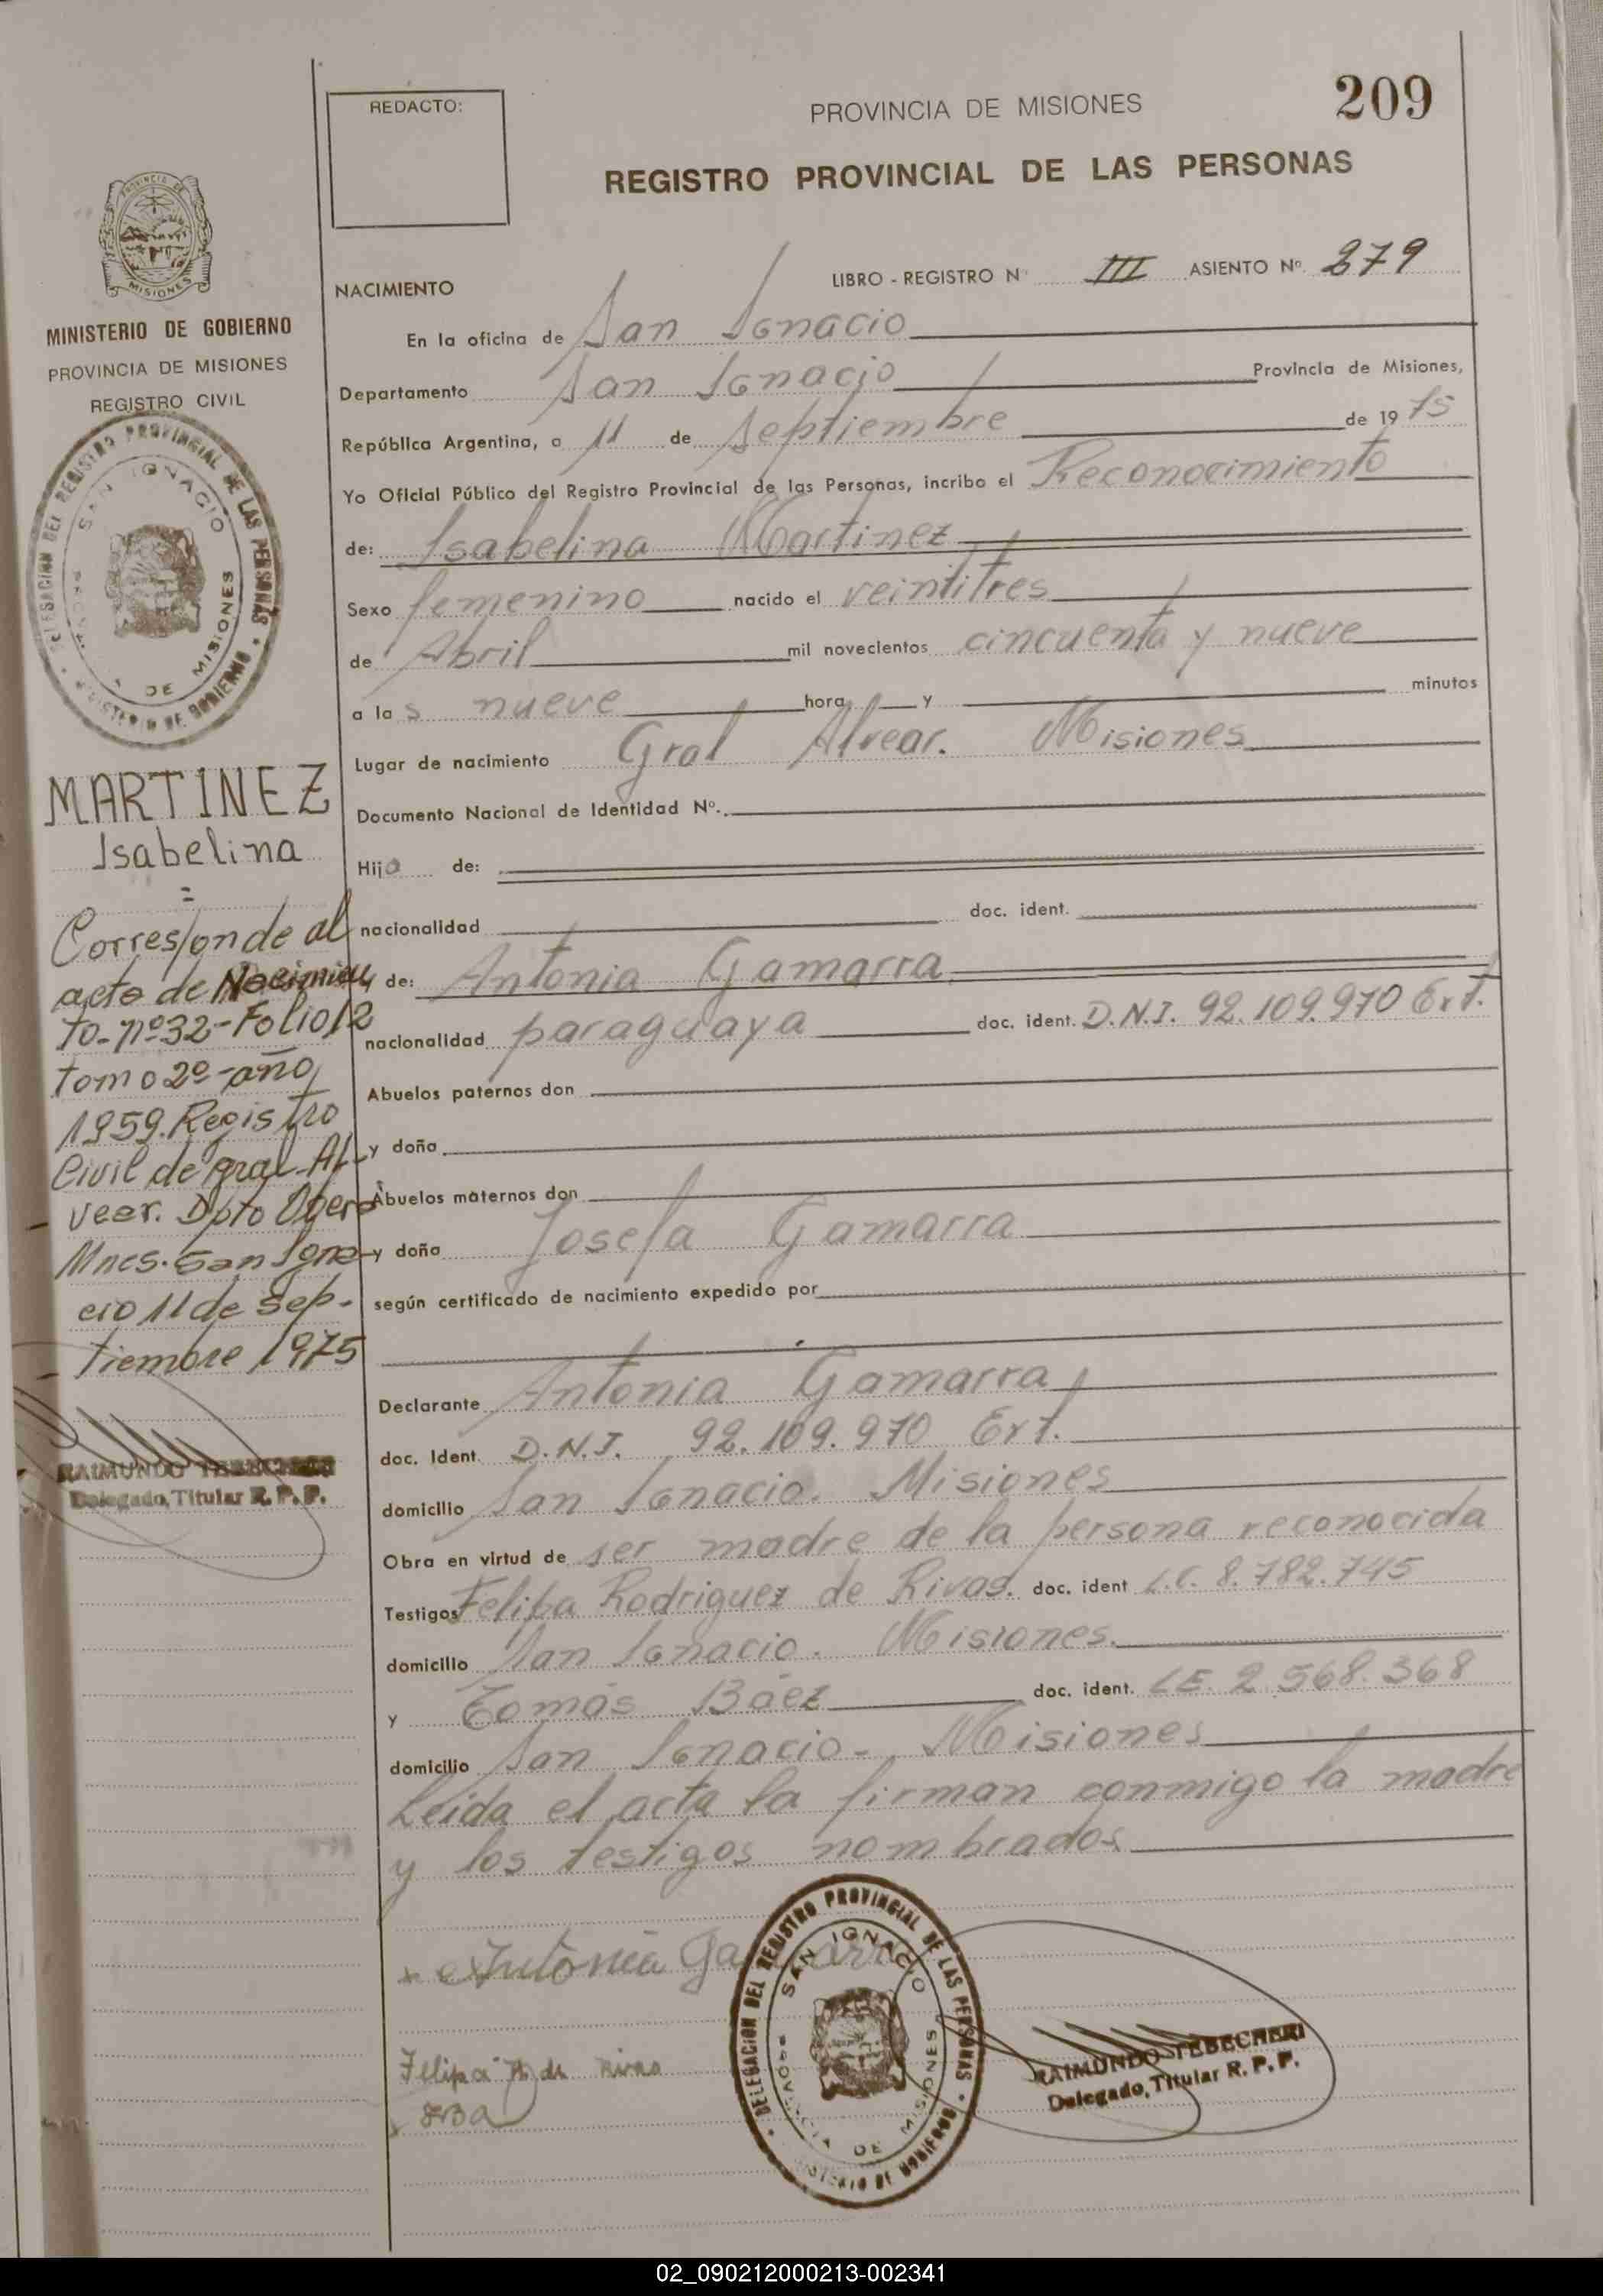 209
REDACTO:
PROVINCIA DE MISIONES
REGISTRO PROVINCIAL DE LAS PERSONAS
MISIONES
MINISTERIO DE GOBIERNO
PROVINCIA DE MISIONES
REGISTRO CIVIL
DELEGACION DEL REGISTRO PROVINCIAL DE LAS PERSONAS
SAN IGNACIO
DE MISIONES
MARTINEZ
Isabelina
Corresponde al
acto de Nacimien
to-nº32-Folio 12
tomo 2º-año
1959. Registro
Civil de Gral-Al-
vear. Dpto Obera
Mnes. San Igna-
cio 11 de Sep-
tiembre 1975
RAIMUNDO TEBECHERI
Delegado, Titular R. P. P.
LIBRO - REGISTRO Nº III ASIENTO Nº 279
NACIMIENTO
En la oficina de San Ignacio
Departamento San Ignacio Provincia de Misiones,
República Argentina, a 11 de Septiembre de 1975
Yo Oficial Público del Registro Provincial de las Personas, incribo el Reconocimiento
de: Isabelina Martinez
Sexo femenino nacido el veintitres
de Abril mil novecientos cincuenta y nueve
a las nueve hora y minutos
Lugar de nacimiento Gral Alvear. Misiones
Documento Nacional de Identidad Nº.
Hija de:
nacionalidad doc. ident.
de: Antonia Gamarra
nacionalidad paraguaya doc. ident. D.N.I. 92.109.970 Ext.
Abuelos paternos don
y doña
Abuelos maternos don
y doña Josefa Gamarra
según certificado de nacimiento expedido por
Declarante Antonia Gamarra
doc. Ident. D.N.I. 92.109.970 Ext.
domicilio San Ignacio. Misiones
Obra en virtud de ser madre de la persona reconocida
Testigos Felipa Rodriguez de Rivas. doc. ident L.C. 8.782.745
domicilio San Ignacio. Misiones.
y Tomás Báez doc. ident. L.E. 2.568.368
domicilio San Ignacio- Misiones
Leida el acta la firman conmigo la madre
y los testigos nombrados
x Antonia Gamarra
Felipa R de Rivas
DELEGACION DEL REGISTRO PROVINCIAL DE LAS PERSONAS
SAN IGNACIO
PROVINCIA DE MISIONES
MINISTERIO DE GOBIERNO
RAIMUNDO TEBECHERI
Delegado, Titular R. P. P.
02_090212000213-002341